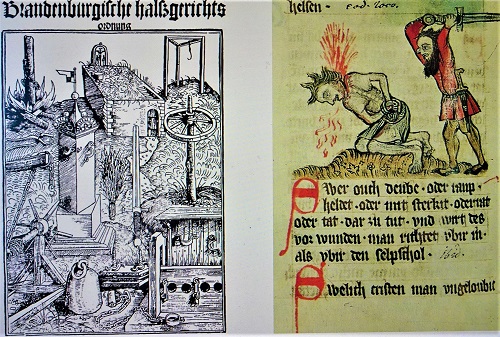 Brandenburgische halßgerichts
ordnung
helfen · eod. loco.
Swer ouch deube · oder raup ·
heldet · oder mit sterkit · oder rat
oder tat · dar zu tut · vnd wirt des
vor wunden · man richtet vbir in ·
als vbir den selpschol · ibid.
Swelich cristen man vngeloubic